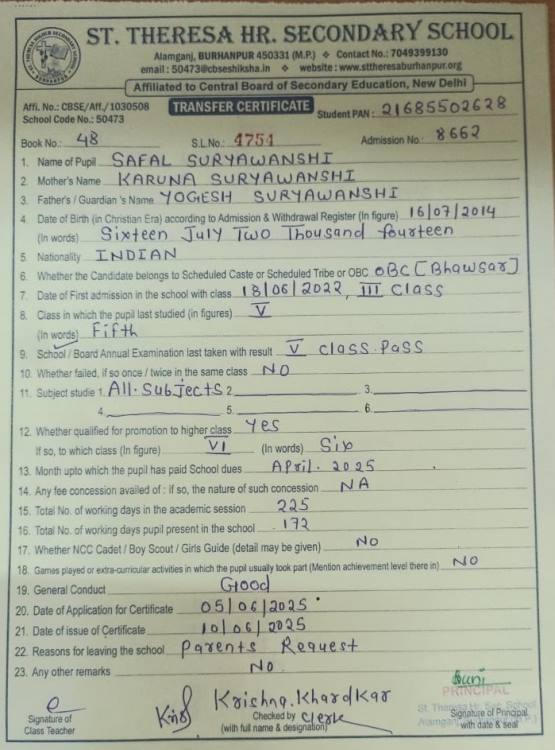 ST. THERESA HR. SECONDARY SCHOOL
Alamganj, BURHANPUR 450331 (M.P.) ❖ Contact No.: 7049399130
email : 50473@cbseshiksha.in ❖ website : www.sttheresaburhanpur.org
Affiliated to Central Board of Secondary Education, New Delhi
Affi. No.: CBSE/Aff./1030508 TRANSFER CERTIFICATE Student PAN : 21685502628
School Code No.: 50473
Book No.: 48 S.L.No.: 4754 Admission No.: 8662
1. Name of Pupil SAFAL SURYAWANSHI
2. Mother's Name KARUNA SURYAWANSHI
3. Father's / Guardian 's Name YOGESH SURYAWANSHI
4. Date of Birth (in Christian Era) according to Admission & Withdrawal Register (In figure) 16/07/2014
(In words) Sixteen July Two Thousand fourteen
5. Nationality INDIAN
6. Whether the Candidate belongs to Scheduled Caste or Scheduled Tribe or OBC OBC [Bhawsar]
7. Date of First admission in the school with class 18/06/2022, III Class
8. Class in which the pupil last studied (in figures) V
(In words) Fifth
9. School / Board Annual Examination last taken with result V class Pass
10. Whether failed, if so once / twice in the same class NO
11. Subject studie 1. All Subjects 2. 3.
4. 5. 6.
12. Whether qualified for promotion to higher class Yes
If so, to which class (In figure) VI (In words) Six
13. Month upto which the pupil has paid School dues April. 2025
14. Any fee concession availed of : if so, the nature of such concession NA
15. Total No. of working days in the academic session 225
16. Total No. of working days pupil present in the school 172
17. Whether NCC Cadet / Boy Scout / Girls Guide (detail may be given) NO
18. Games played or extra-curricular activities in which the pupil usually took part (Mention achievement level there in) NO
19. General Conduct Good
20. Date of Application for Certificate 05/06/2025
21. Date of issue of Certificate 10/06/2025
22. Reasons for leaving the school Parents Request
23. Any other remarks NO
PRINCIPAL
Krishna. Khardkar
St. Theresa Hr. Sec. School
Signature of Class Teacher
Checked by Clerk
(with full name & designation)
Signature of Principal
with date & seal